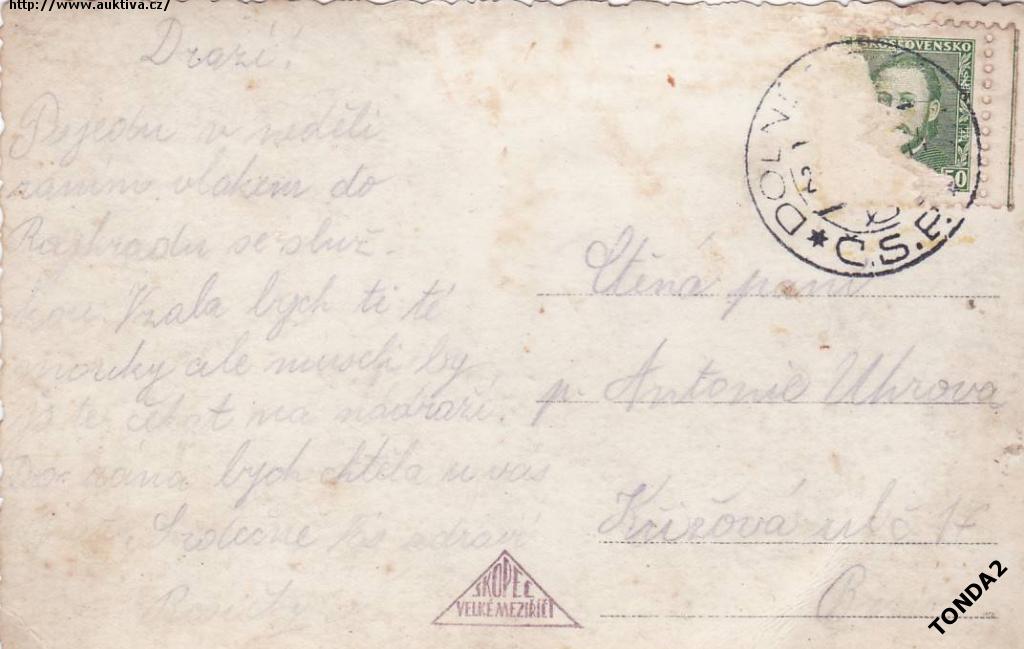 http://www.auktiva.cz/
Drazí!
Pojedu v neděli
raním vlakem do
Rajhradu se služ-
kou. Vzala bych ti té
mouky ale museli by
jste čekat na nádraží.
rána bych chtěla u vás
Srdečně Vás zdraví
ČESKOSLOVENSKO
50
DOL
Č.S.P.
Ctěná paní
p. Antonie Uhrova
Křížová ul č 17
SKOPEC
VELKÉ MEZIŘÍČÍ
TONDA2